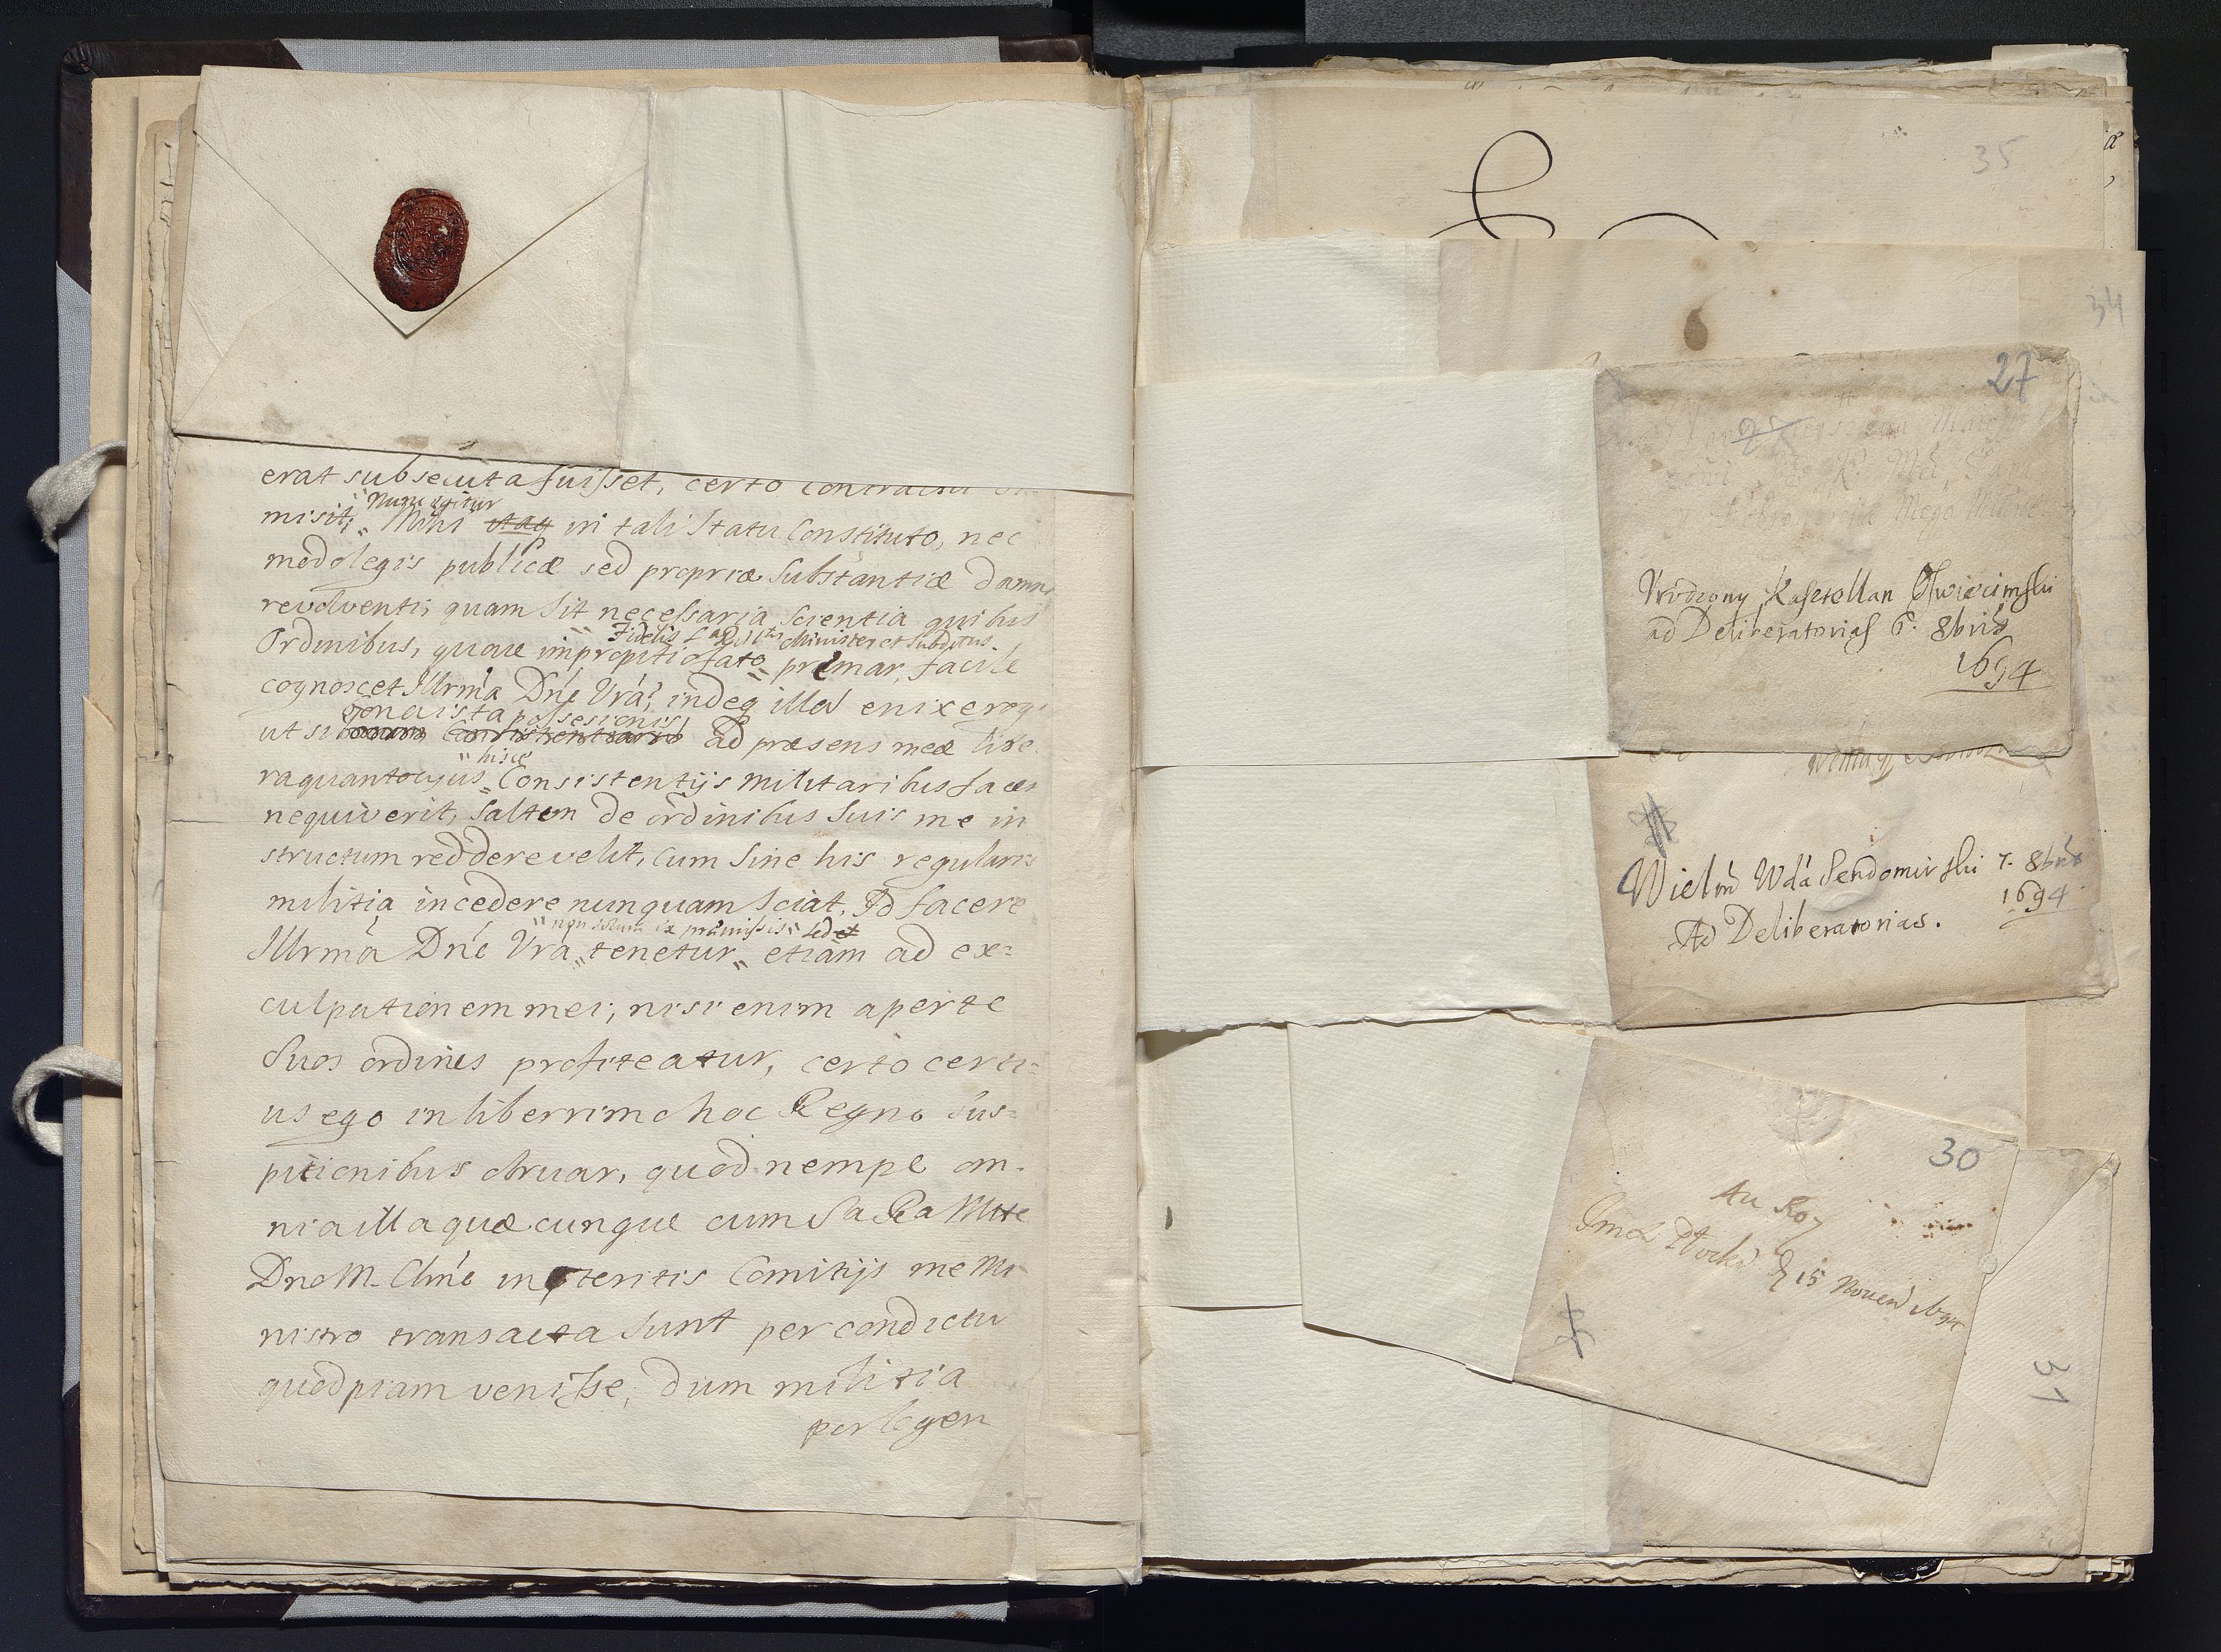 erat subsecuta fuisset, certo
Nunc igitur
misit; Mihi itaq in tali Statu Constituto, nec
modo legis publicæ sed propriæ Substantiæ damna
revolventi, quam sit necessaria scientia quibus
Fidelis Minister et Subditus.
Ordinibus, quave impropitio fato premar, facile
cognoscet Illrma Dne Vra, indeq illa enixe rogo
ista possesionis
ut si ad præsens meæ lite
hisce
ra quantocyus Consistentijs militaribus faces
nequiverit, saltem de ordinibus suis me in
structum reddere velit, cum sine his regularis
militia incedere nunquam sciat. Id facere
non solum ex præmissis sed et
Illrma Dne Vra tenetur etiam ad ex=
culpationem mei; nisi enim aperte
suos ordines profiteatur, certo certi=
us ego in liberrimo hoc Regno sus=
picionibus obruar, quod nempe om-
nia illa quæcunque cum Sa Ra Mtte
Dno M. Clme in præteritis Comitijs me Mi
nistro transacta sunt per condictu
quodpiam venisse, dum militia
per legen
35
34
27
Urodzony Kasztellan Oswiecimski
ad Deliberatorias 6. 8bris
1694
Wielm Wda Sendomirski 7. 8bris
1694
Ad Deliberatorias.
30
Au Roy
15 Novem
31